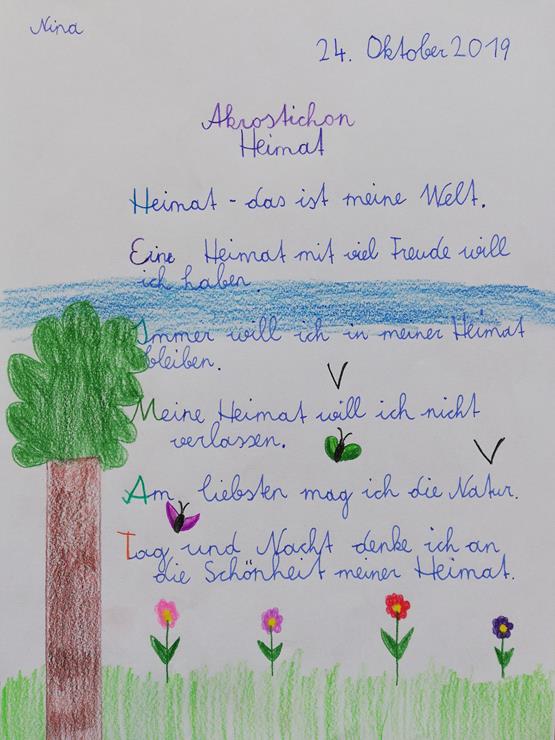 Nina
24. Oktober 2019
Akrostichon
Heimat
Heimat - das ist meine Welt.
Eine Heimat mit viel Freude will
ich haben.
Immer will ich in meiner Heimat
bleiben.
Meine Heimat will ich nicht
verlassen.
Am liebsten mag ich die Natur.
Tag und Nacht denke ich an
die Schönheit meiner Heimat.